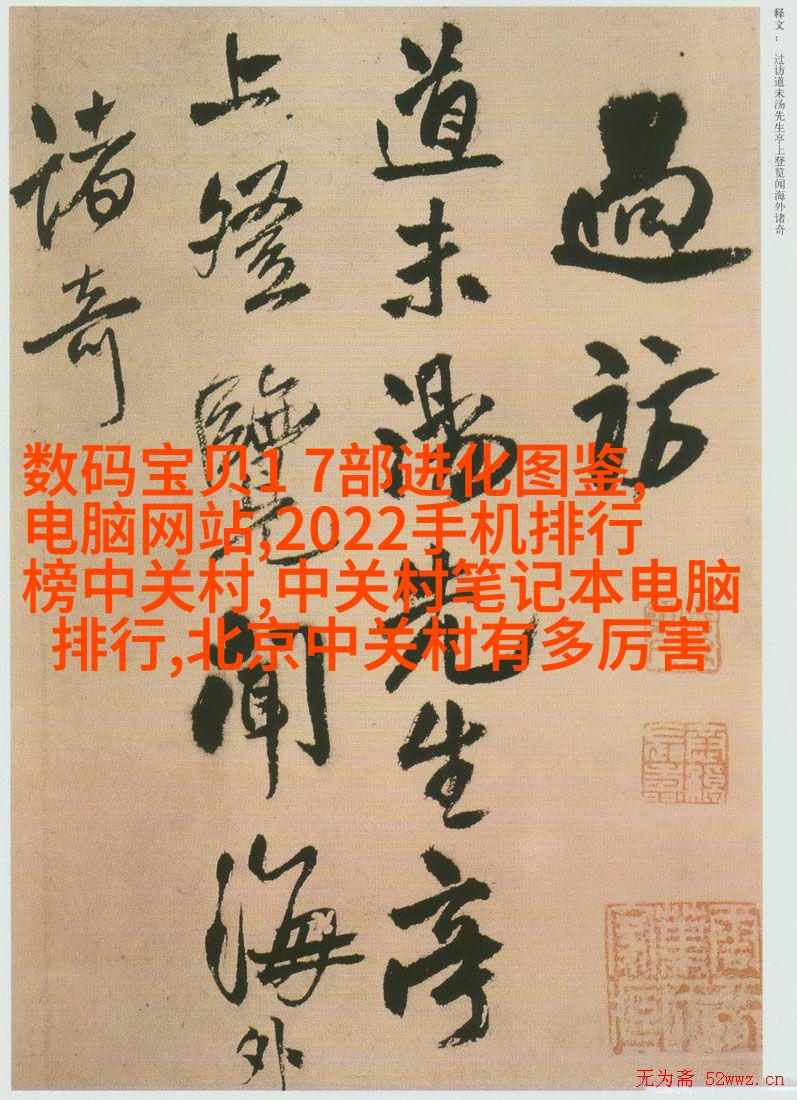 過訪
道未湯先生亭
上登覽聞海外
諸奇
释文： 过访道未汤先生亭上登览闻海外诸奇
数码宝贝1 7部进化图鉴,
电脑网站,2022手机排行
榜中关村,中关村笔记本电脑
排行,北京中关村有多厉害
无为斋 52wwz.cn